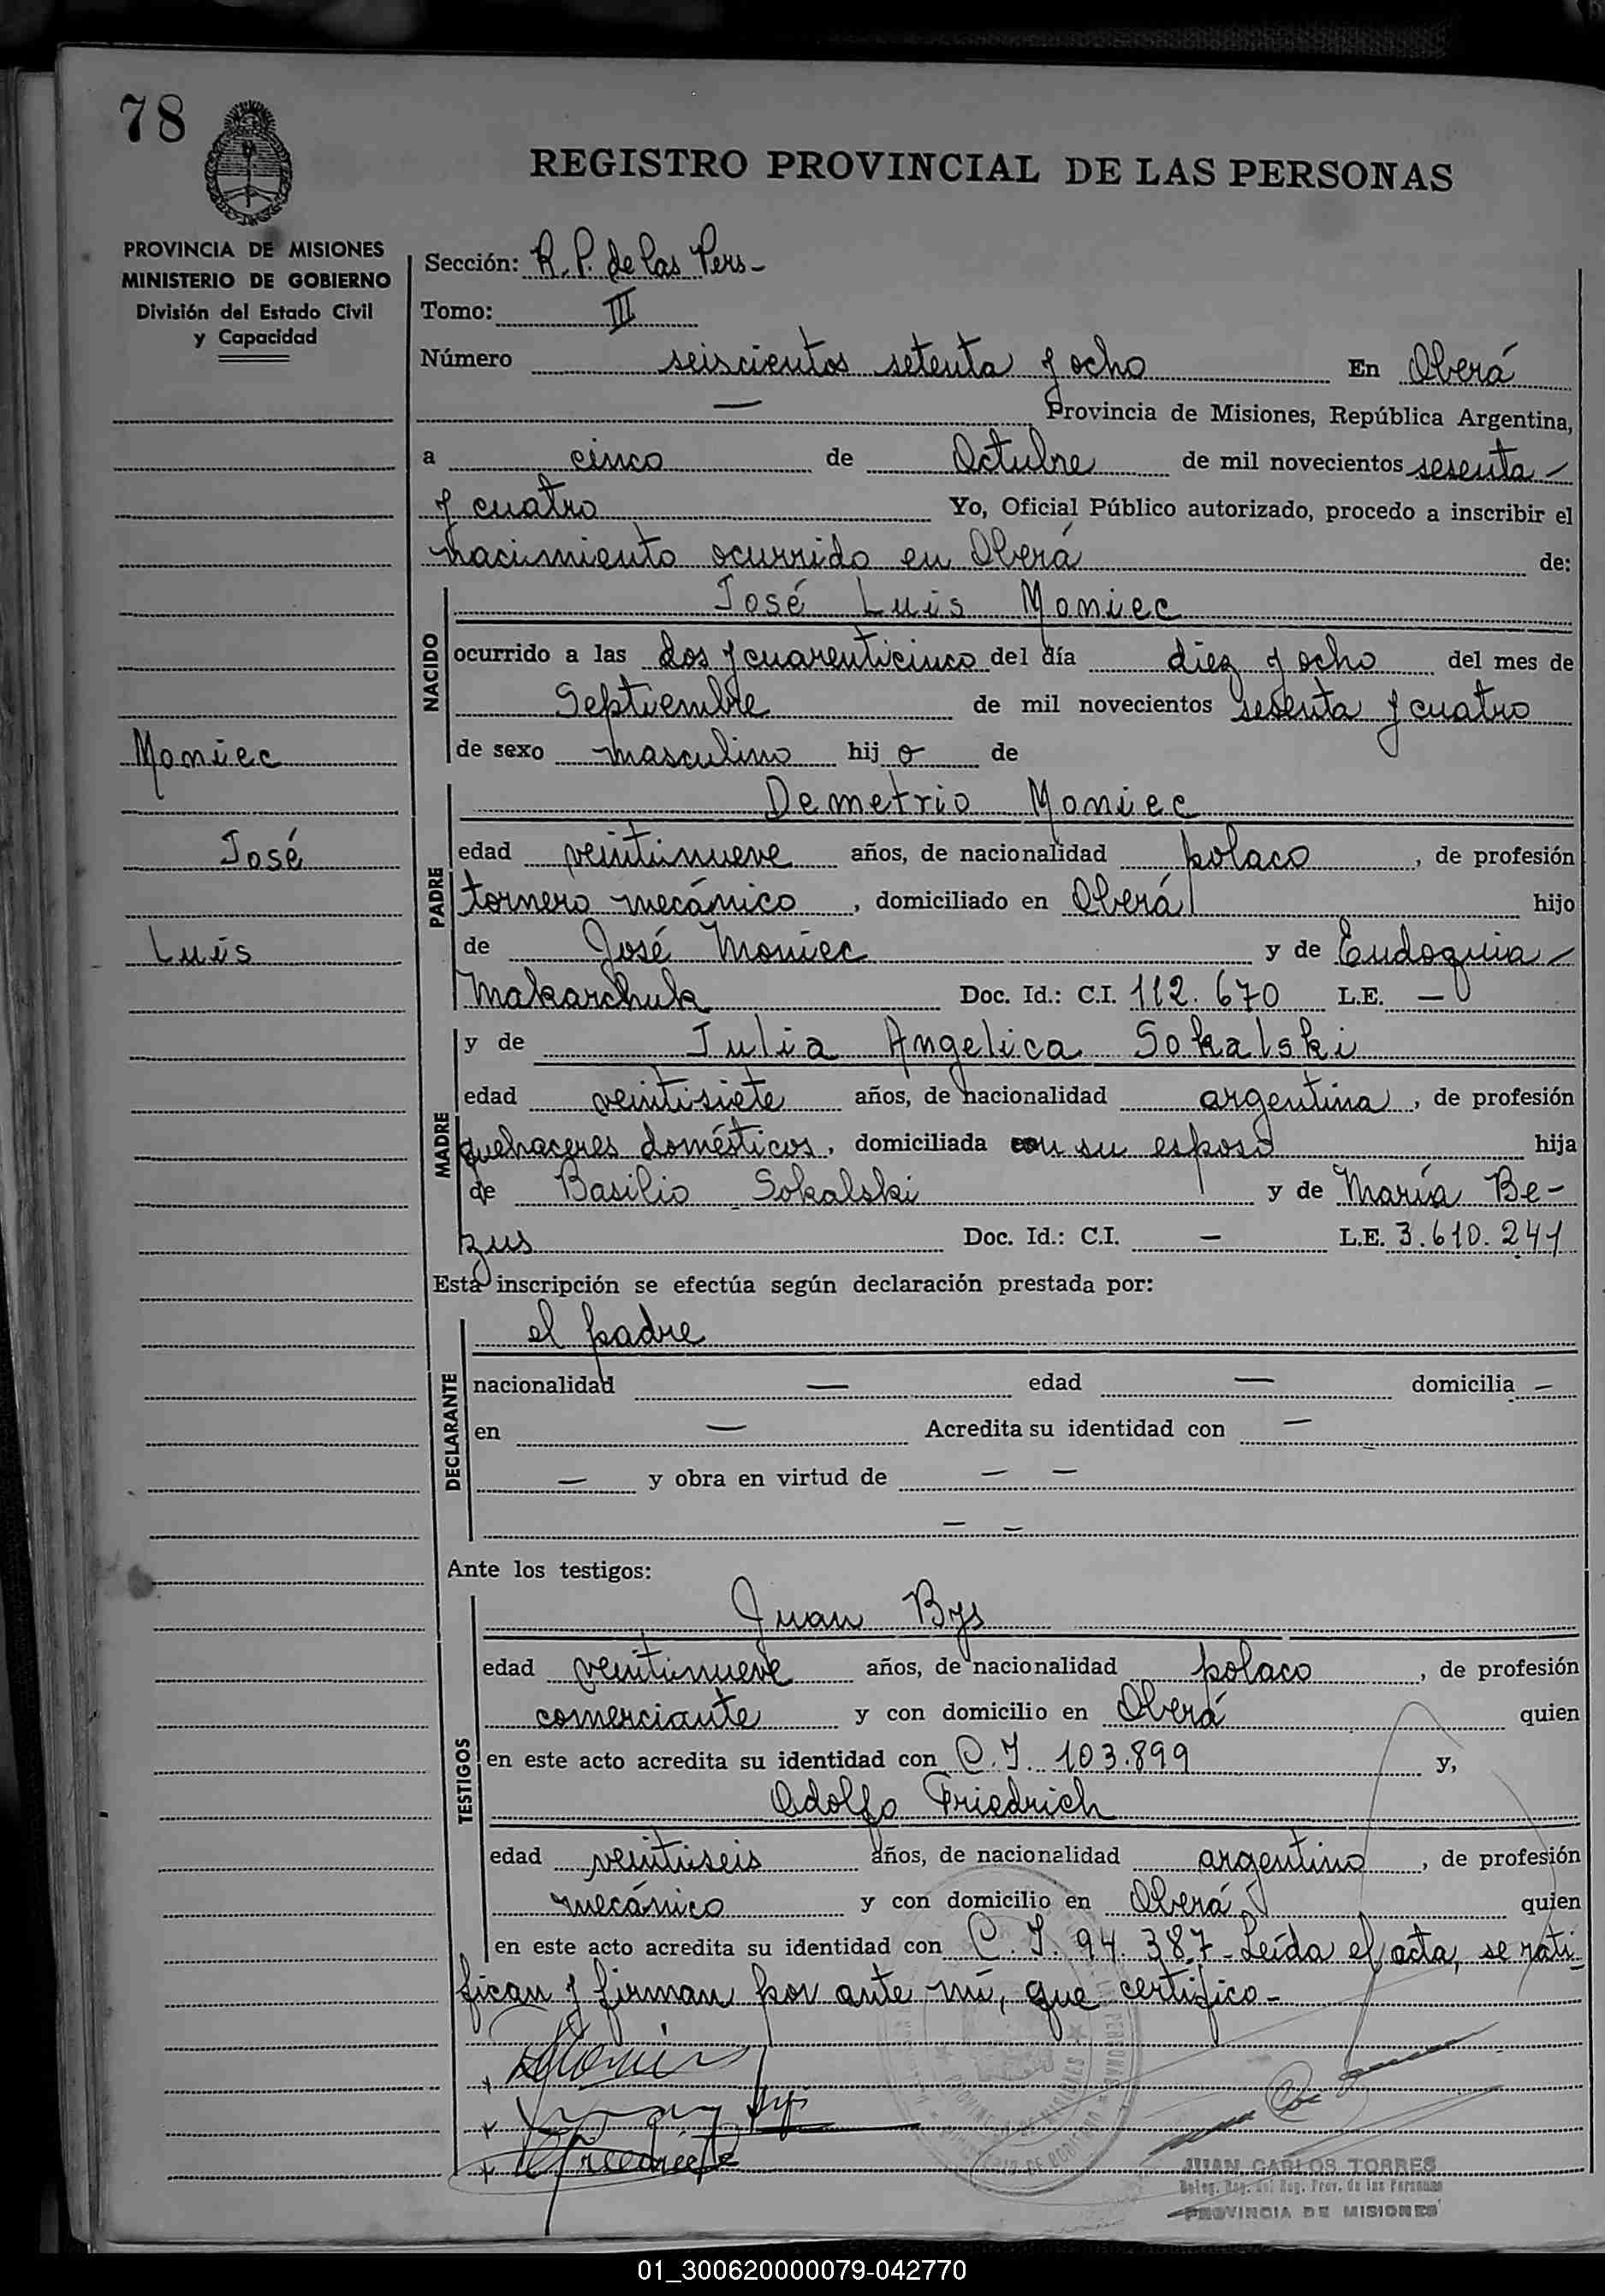 78
REGISTRO PROVINCIAL DE LAS PERSONAS
PROVINCIA DE MISIONES
MINISTERIO DE GOBIERNO
División del Estado Civil
y Capacidad
Sección: R. P. de las Pers-
Tomo: III
Número seiscientos setenta y ocho En Oberá
— Provincia de Misiones, República Argentina,
a cinco de Octubre de mil novecientos sesenta -
y cuatro Yo, Oficial Público autorizado, procedo a inscribir el
nacimiento ocurrido en Oberá de:
NACIDO
José Luis Moniec
ocurrido a las dos y cuarenticinco del día diez y ocho del mes de
Septiembre de mil novecientos sesenta y cuatro
de sexo masculino hij o de
Moniec
José
Luis
PADRE
Demetrio Moniec
edad veintinueve años, de nacionalidad polaco, de profesión
tornero mecánico, domiciliado en Oberá hijo
de José Moniec y de Eudoquia -
Makarchuk Doc. Id.: C.I. 112.670 L.E. —
MADRE
y de Julia Angelica Sokalski
edad veintisiete años, de nacionalidad argentina, de profesión
quehaceres domésticos, domiciliada con su esposo hija
de Basilio Sokalski y de María Be-
zus Doc. Id.: C.I. — L.E. 3.610.241
Esta inscripción se efectúa según declaración prestada por:
DECLARANTE
el padre
nacionalidad — edad — domicilia —
en — Acredita su identidad con —
— y obra en virtud de — —
— —
Ante los testigos:
TESTIGOS
Juan Bys
edad veintinueve años, de nacionalidad polaco, de profesión
comerciante y con domicilio en Oberá quien
en este acto acredita su identidad con C.I. 103.899 y,
Adolfo Friedrich
edad veintiseis años, de nacionalidad argentino, de profesión
mecánico y con domicilio en Oberá quien
en este acto acredita su identidad con C.I. 94.387- Leída el acta, se rati-
fican y firman por ante mí, que certifico-
JUAN CARLOS TORRES
Deleg. Reg. del Reg. Prov. de las Personas
PROVINCIA DE MISIONES
01_300620000079-042770